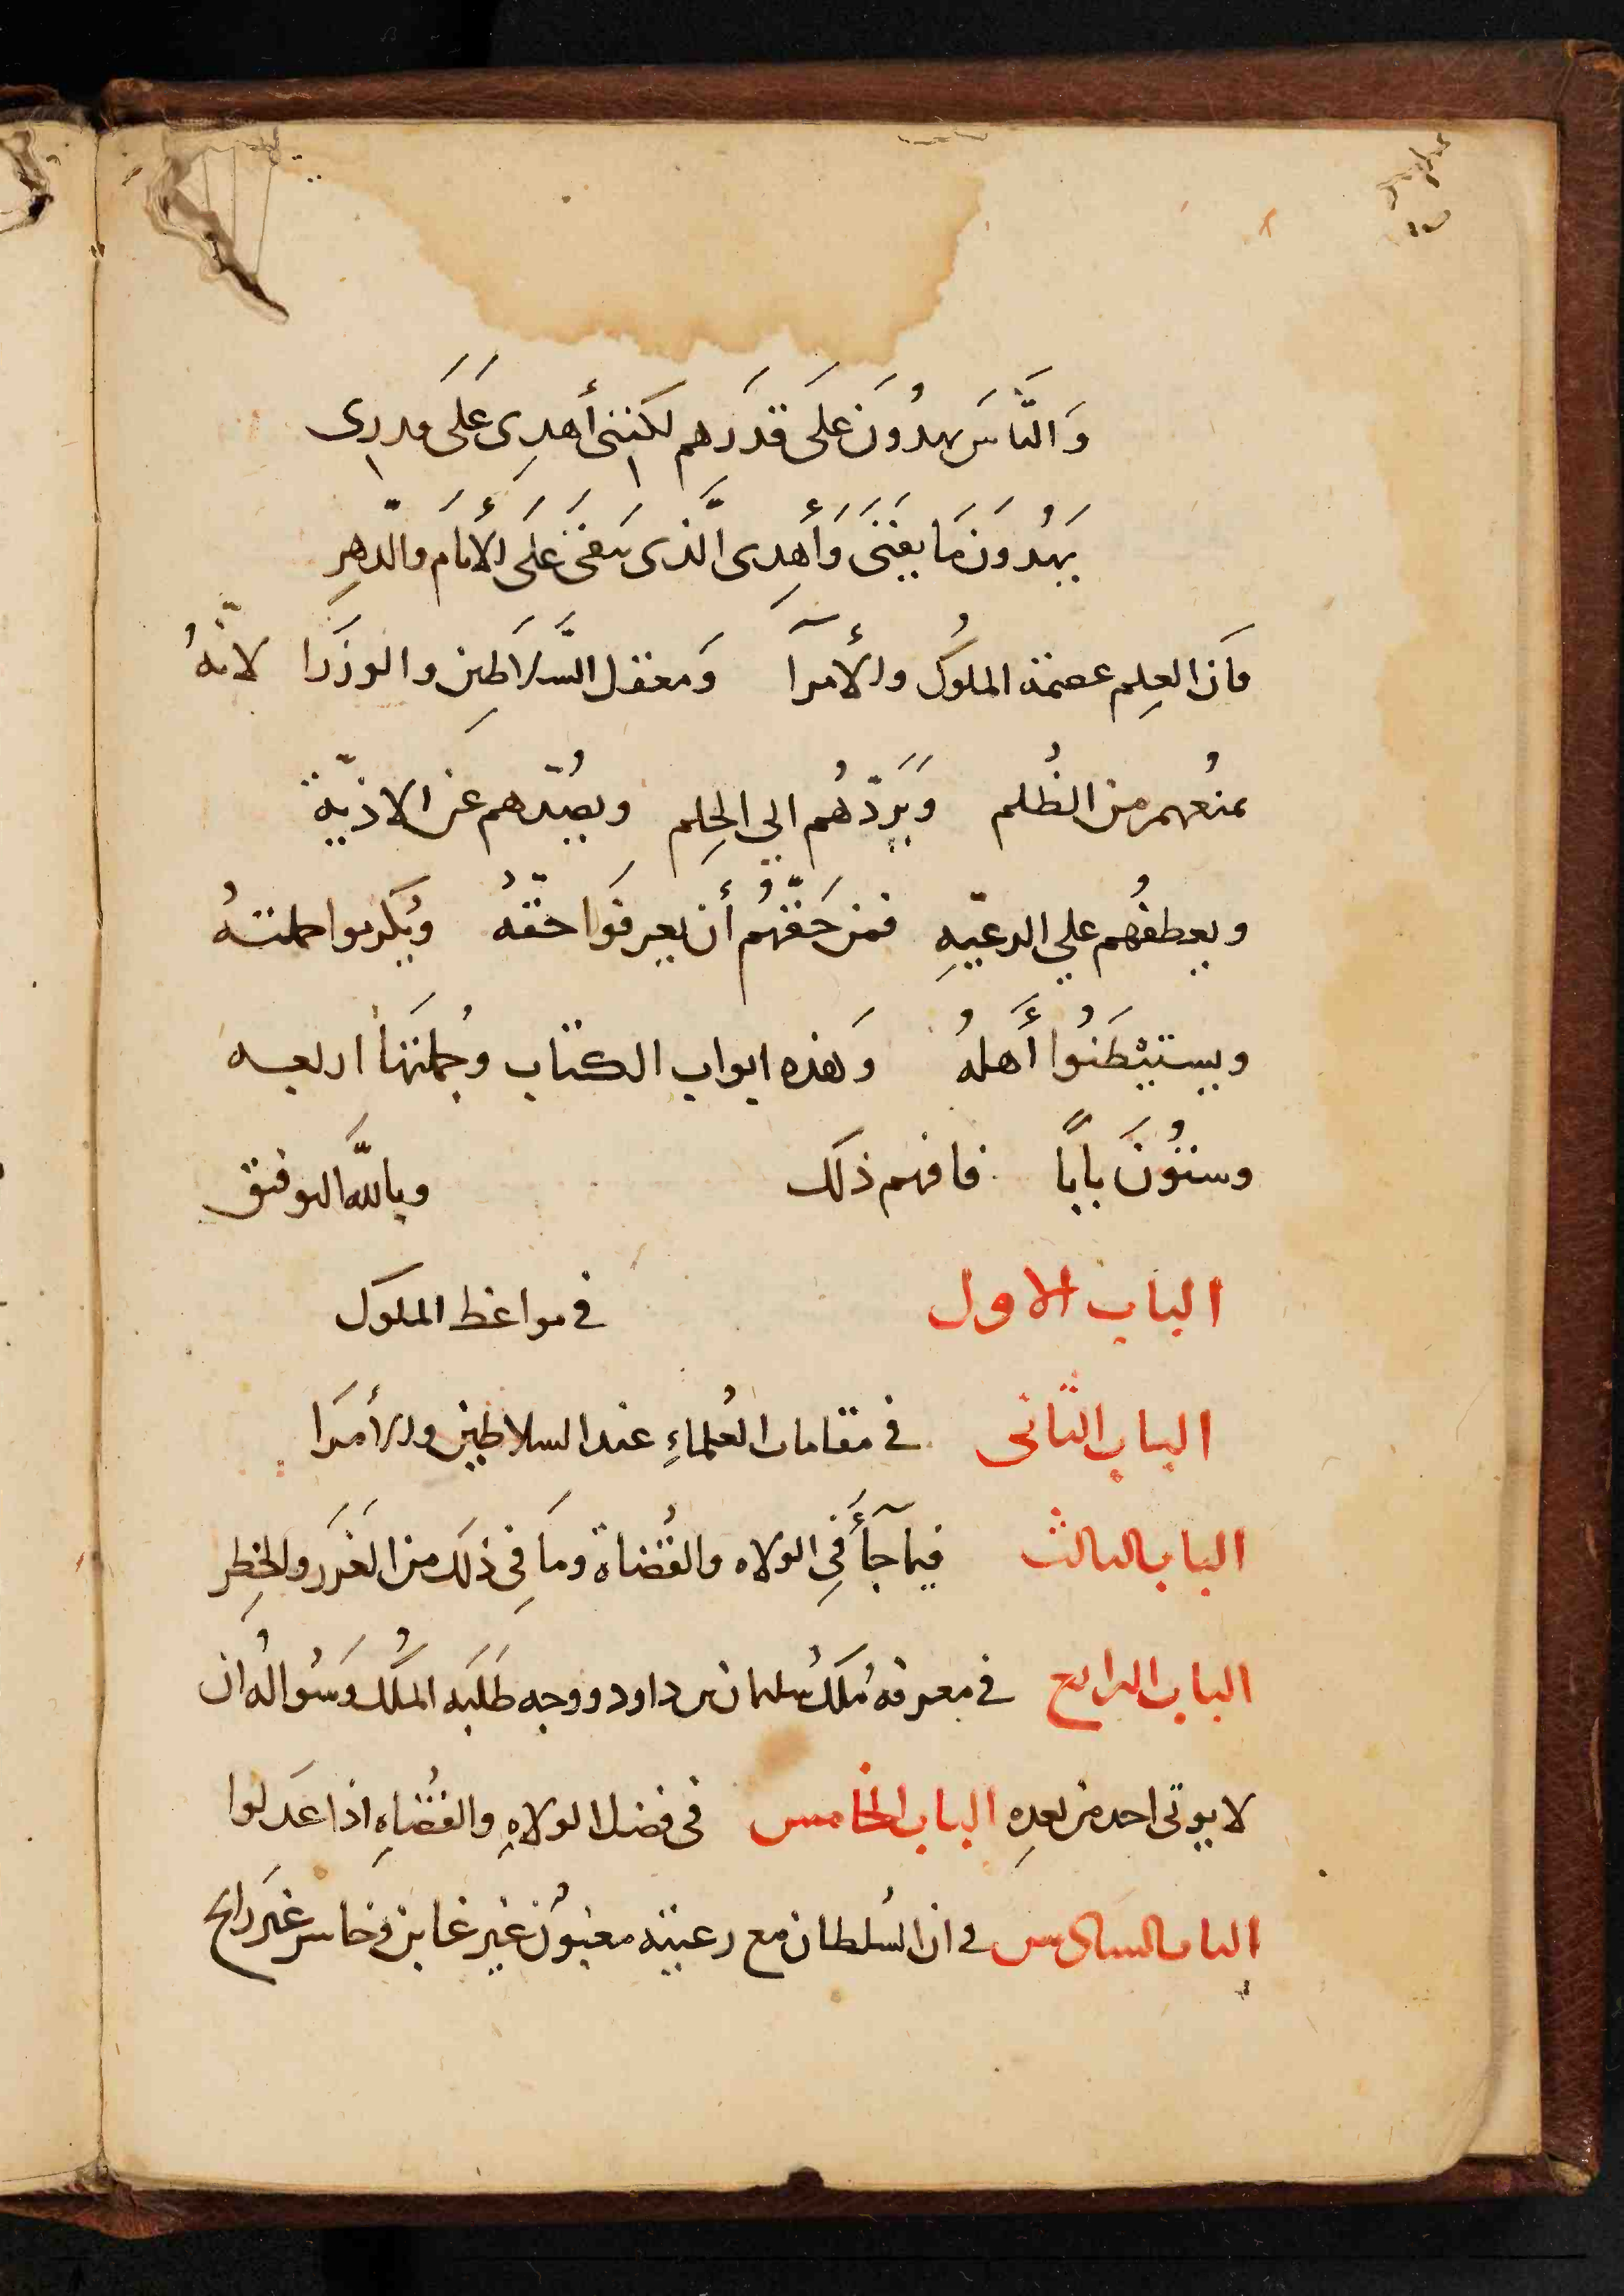 وَالنَّاسَ يهدُونَ عَلَى قَدَرهم لكنني أُهدِى عَلَى قدرِى
يَهْدُونَ مَا يَفنَى وَأُهدِى الَّذى يَبقَى عَلَى الأَيام والدّهرِ
فَان العِلم عصمة الملُوك والأُمرآ وَمعقل السَّلاَطين والوزَرا لانّهُ
يمنعُهم من الظُلم وَيَردّهُم الي الحِلم ويصُدّهم عن الاذيّة
ويعطفُهم علي الرعيّهِ فمن حَقّهُم أن يعرفَوا حقّهُ ويُكرموا حملتهُ
ويستَبْطَنُوا أَهلهُ وَهذه ابواب الكتاب وجُملَتها اربعه
وستُّونَ بابًا فافهم ذلَك وباللَّه التوفيق
الباب الاول في مواعظ الملوك
الباب الثانى في مقامات العُلماءِ عند السلاطين والأمرَا
الباب الثالث فيما جآأَ فِي الولاه والقُضاة ومَا فِي ذلَك من الغَرَر والخطِر
الباب الرابع في معرفة مُلَك سُليمان بن داود ووجه طَلَبَه المُلك وَسُوالهُ ان
لا يوتى احد من بعدِه الباب الخامس فى فضل الولاهِ والقُضاهِ اذا عَدلوا
الباب السادس في ان السُلطان مع رعيته مغبُون غير غابن وخاسر غيَر رابح